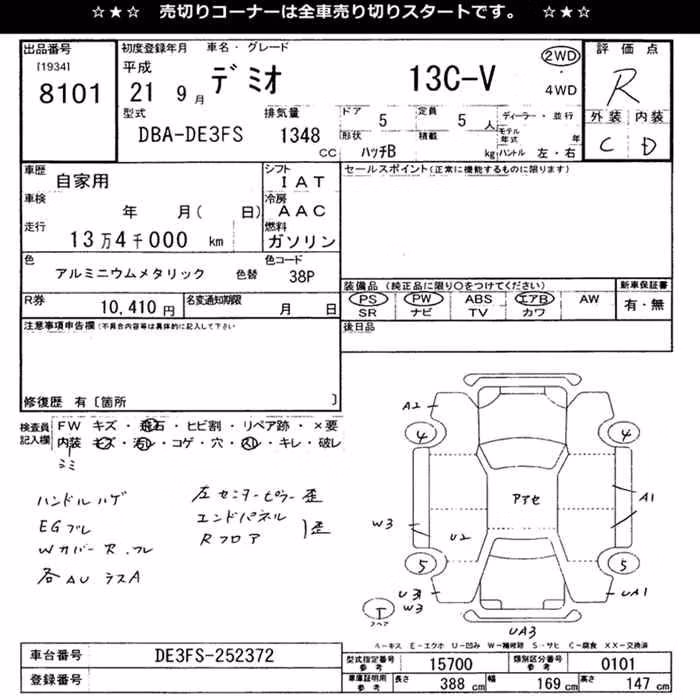 ☆★☆ 売切りコーナーは全車売り切りスタートです。 ☆★☆
出品番号
[1934]
8101
初度登録年月 車名・グレード
平成
21 9月 デミオ 13C-V
2WD
・
4WD
評価点
R
外装 内装
C D
型式
DBA-DE3FS
排気量
1348
CC
ドア 5
定員 5 人
形状 ハッチB
積載 kg
ディーラー・並行
モデル年式 年
ハンドル 左・右
車歴
自家用
車検
年 月( 日)
走行
13万4千000 km
シフト
IAT
冷房
AAC
燃料
ガソリン
色
アルミニウムメタリック 色替
色コード
38P
R券
10,410円
名変通知期限
月 日
セールスポイント(正常に機能するものに限ります)
装備品 (純正品に限り○をつけてください)
PS PW ABS エアB AW
SR ナビ TV カワ
新車保証書
有・無
後日品
注意事項申告欄(不具合内容等は具体的に記入して下さい
修復歴 有〔箇所 〕
検査員記入欄
FW キズ・飛石・ヒビ割・リペア跡・×要
内装 キズ・汚れ・コゲ・穴・スレ・キレ・破レ
シミ
ハンドルハゲ
EGブレ
WカバーR.フレ
各AU ラスA
左センターピラー歪
エンドパネル
Rフロア
歪
A2
4
4
アアセ
A1
W3
U2
5
5
U3
W3
UA1
T
スペア
UA3
A－キズ E－エクボ U－凹み W－補修跡 S－サビ C－腐食 XX－交換済
車台番号
DE3FS-252372
登録番号
型式指定番号
参考
15700
類別区分番号
参考
0101
車庫証明用
参考
長さ 388 cm
幅 169 cm
高さ 147 cm